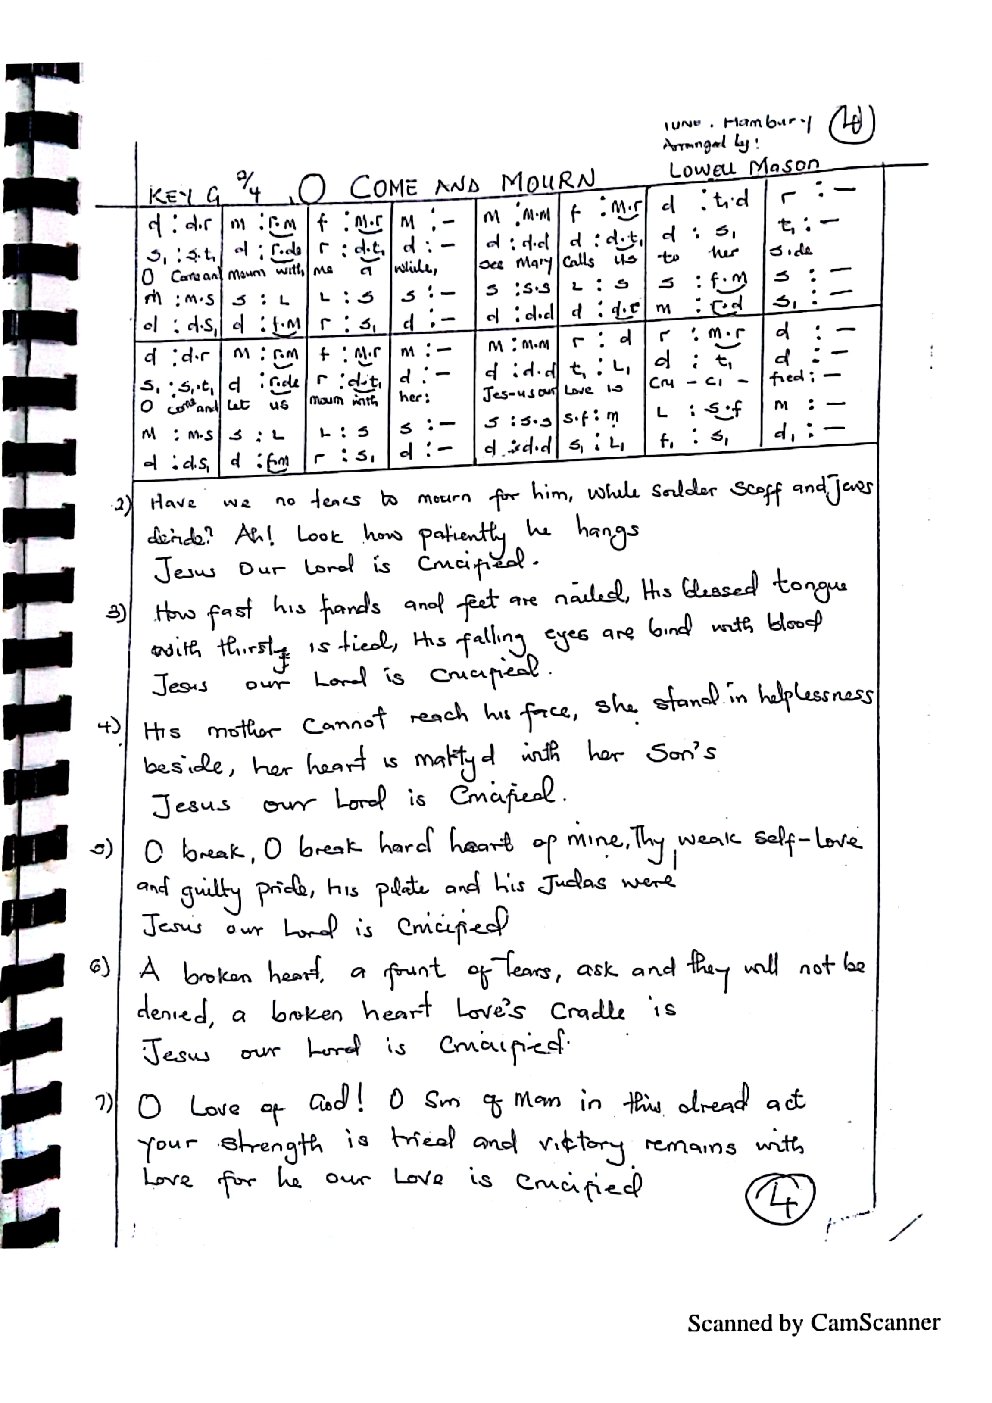 TUNE. Hambury 4
Arranged by:
Lowell Mason
KEY G 2/4 O COME AND MOURN
d : d.r | m : r.m | f : m.r | m : – | m : m.m | f : m.r | d : t₁.d | r : –
s₁ : s₁.t₁ | d : r.d.e | r : d.t₁ | d : – | d : d.d | d : d.t₁ | d : s₁ | t₁ : –
O Come and mourn with me a while, see Mary Calls us to her side
m : m.s | s : L | L : s | s : – | s : s.s | L : s | s : f.m | s : –
d : d.s₁ | d : f.m | r : s₁ | d : – | d : d.d | d : d.r | m : r.d | s₁ : –
d : d.r | m : r.m | f : m.r | m : – | m : m.m | r : d | r : m.r | d : –
s₁ : s₁.t₁ | d : r.d.e | r : d.t₁ | d : – | d : d.d | t₁ : L₁ | d : t₁ | d : –
O come and Let us mourn with her: Jes-us our Love is Cru - ci - fied : –
m : m.s | s : L | L : s | s : – | s : s.s | s.f : m | L : s.f | m : –
d : d.s₁ | d : f.m | r : s₁ | d : – | d : d.d | s₁ : L₁ | f₁ : s₁ | d₁ : –
2) Have we no tears to mourn for him, while soilder scoff and Jews
deride? Ah! Look how patiently he hangs
Jesus Our Lord is Crucified.
3) How fast his hands and feet are nailed, His blessed tongue
with thirsty is tied, His falling eyes are bind with blood
Jesus our Lord is Crucified.
4) His mother Cannot reach his face, she stand in helplessness
beside, her heart is maktyd with her Son's
Jesus our Lord is Crucified.
5) O break, O break hard heart of mine, Thy weak self-love
and guilty pride, his pilate and his Judas were
Jesus our Lord is Crucified
6) A broken heart, a fount of Tears, ask and they will not be
denied, a broken heart Love's Cradle is
Jesus our Lord is Crucified.
7) O Love of God! O Sin of Man in this dread act
your strength is tried and victory remains with
Love for he our Love is Crucified
4
Scanned by CamScanner